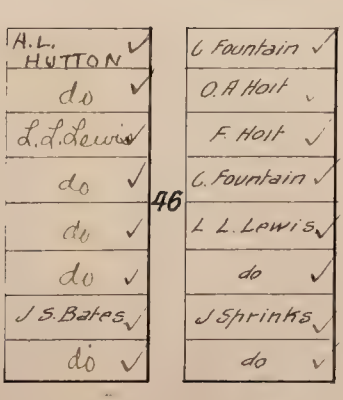 A.L.
HUTTON
do
L.L.Lewis
do
do
do
J S. Bates
do
46
C Fountain
O. A Hoit
F. Hoit
C. Fountain
L L. Lewis
do
J Shrinks
do